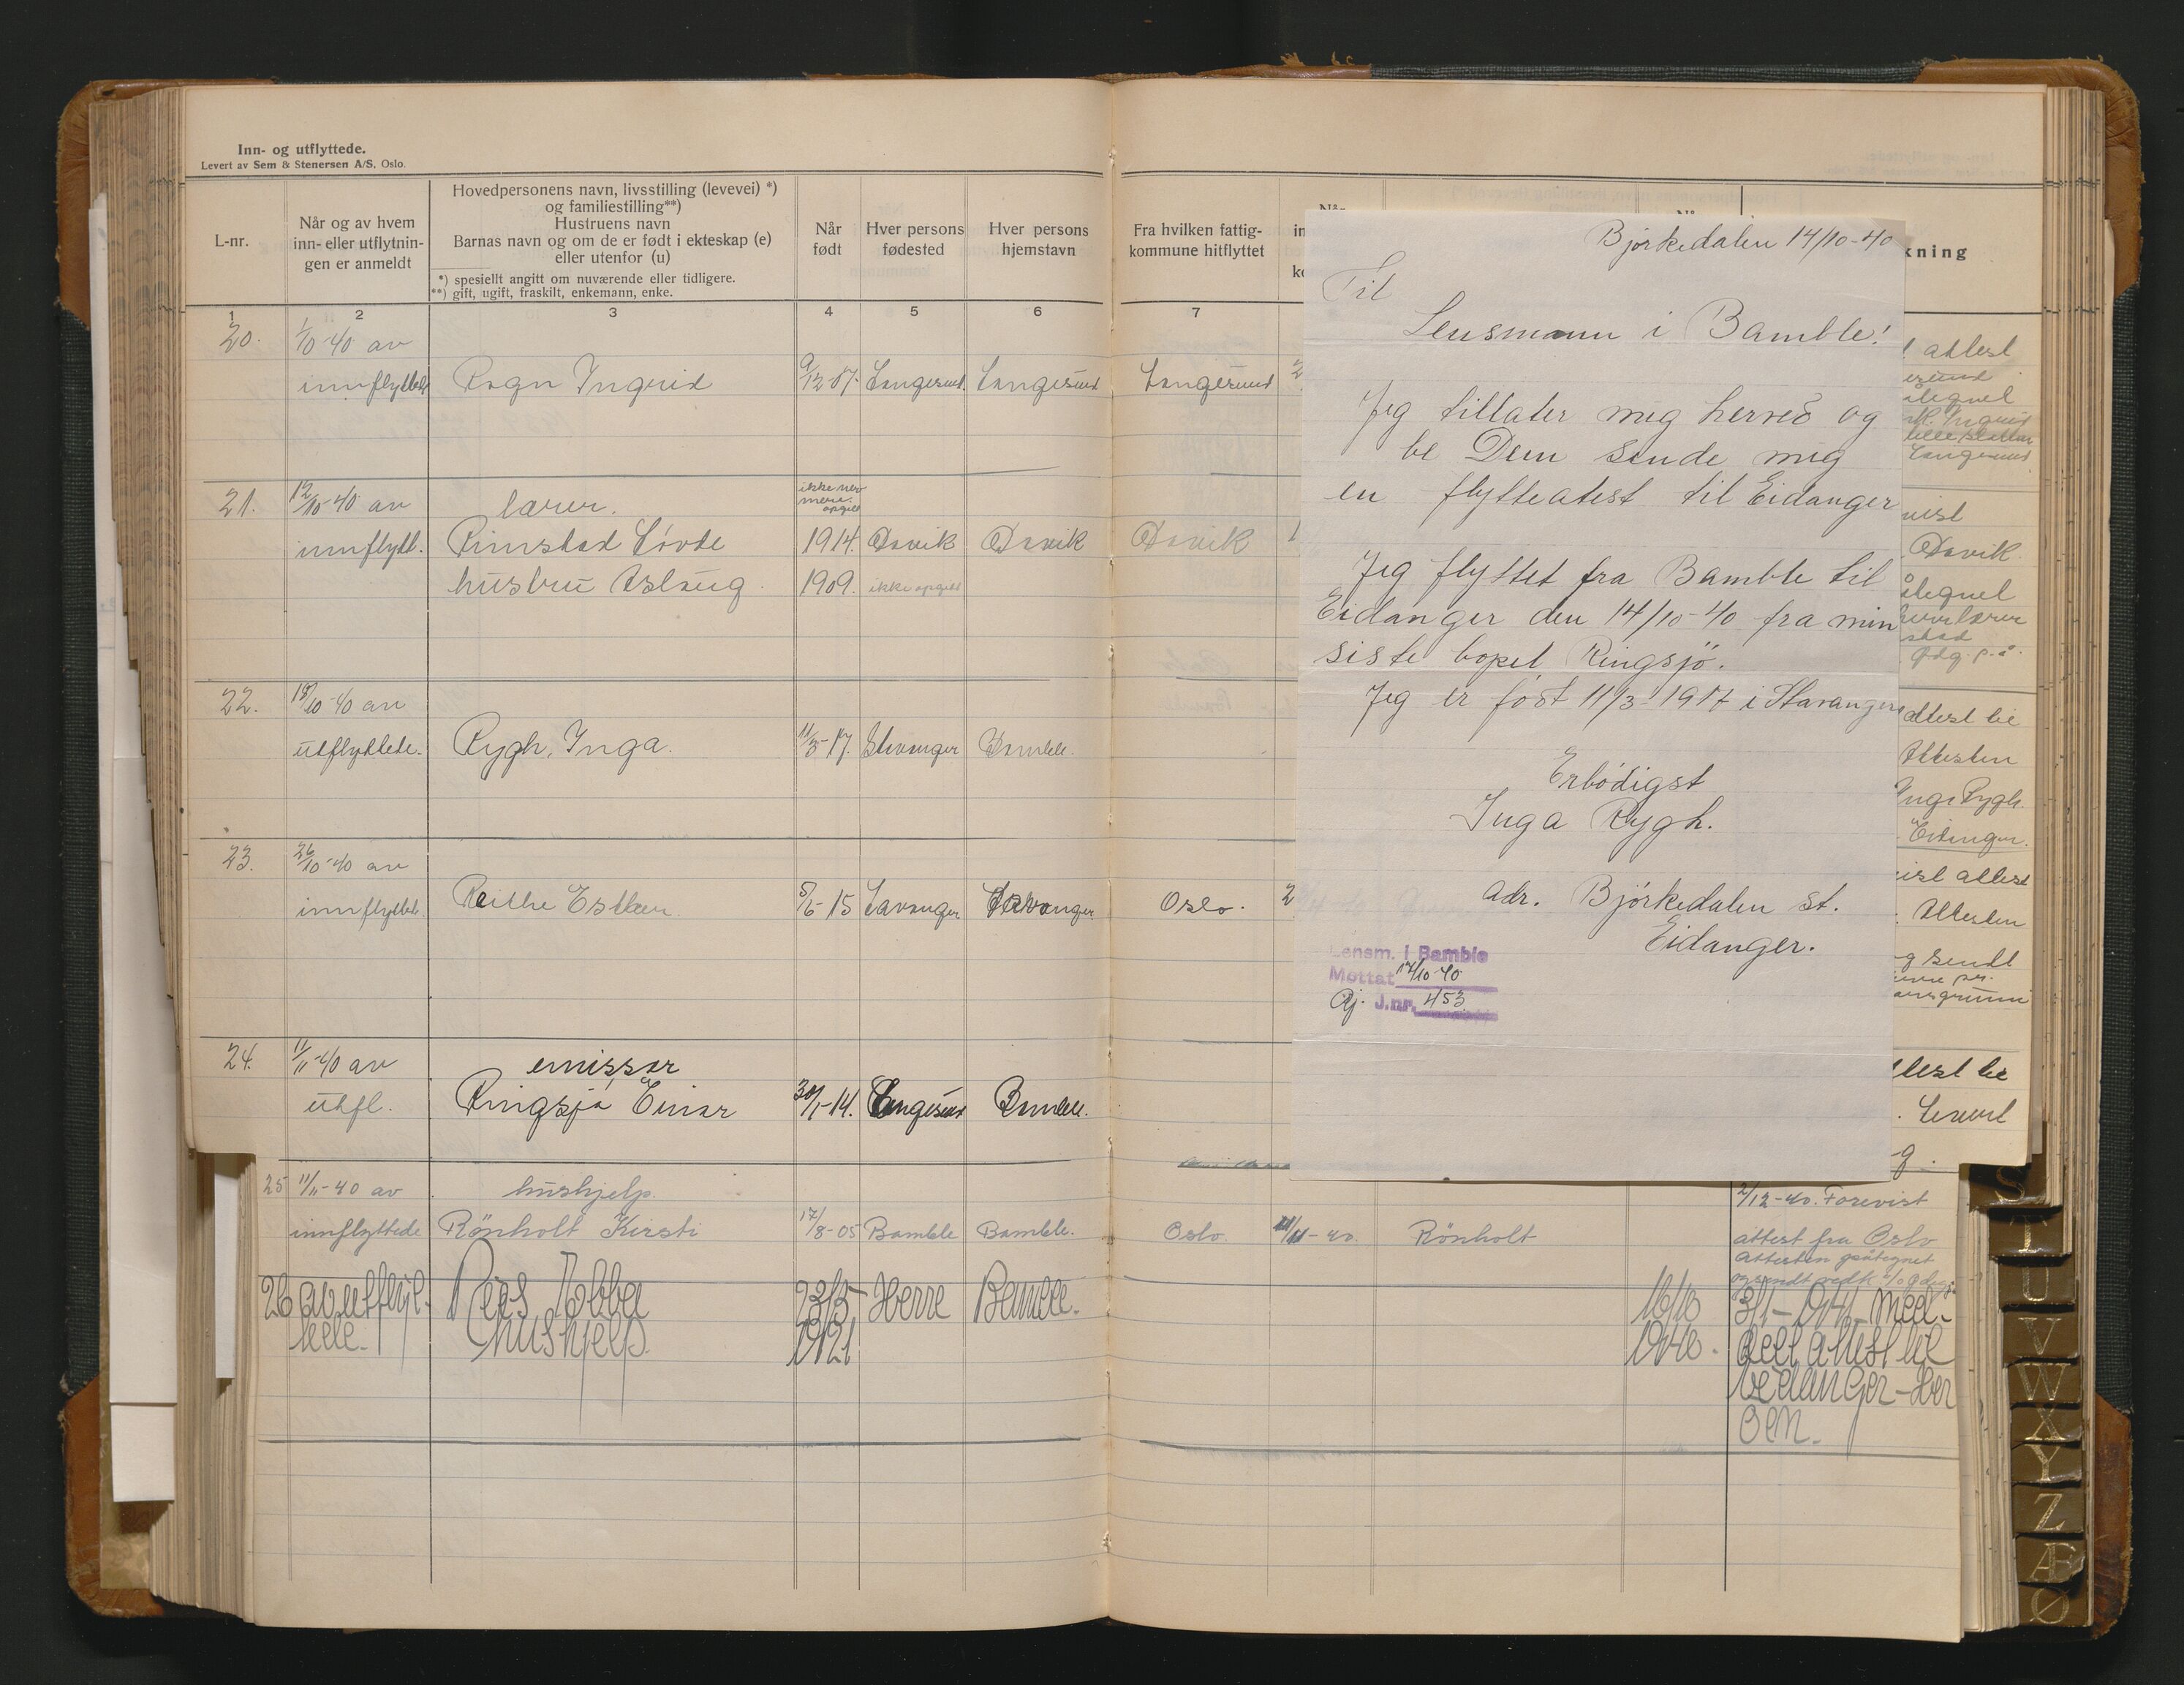 Inn- og utflyttede.
Levert av Sem & Stenersen A/S. Oslo.
L-nr.
Når og av hvem
inn- eller utflytnin-
gen er anmeldt
Hovedpersonens navn, livsstilling (levevei) *)
og familiestilling**)
Hustruens navn
Barnas navn og om de er født i ekteskap (e)
eller utenfor (u)
*) spesiellt angitt om nuværende eller tidligere.
**) gift, ugift, fraskilt, enkemann, enke.
Når
født
Hver persons
fødested
Hver persons
hjemstavn
Fra hvilken fattig-
kommune hitflyttet
kning
1 2 3 4 5 6 7
20. 1/10-40 av
innflyttede Rogn Ingrid 9/12 07. Langesund Langesund Langesund
attest
21. 12/10-40 av lærer.
innflytt. Rimstad Løvde 1914. Davik Davik Davik
hustru Aslaug 1909. ikke opgitt
Davik
22. 18/10-40 av
utflyttede. Rygh, Inga. 11/3-17. Stavanger Bamble.
attest til
Attesten
Inga Rygh.
Eidanger.
23. 26/10-40 av
innflyttede Reithe Esther 5/6-15 Stavanger Stavanger Oslo. 2
attest
Attesten
og sendt
24. 11/11-40 av emissær
utfl. Ringsjø Einar 30/1-14. Langesund Bamble.
Levert
25 11/11-40 av hushjelp.
innflyttede Rönholt Kirsti 17/8-05 Bamble Bamble. Oslo. 11/11-40. Rönholt
2/12-40. Forevist
attest fra Oslo
Attesten påtegnet
26 av utflyt- Reis Ebba 23/5 Herre Bamble. 16/10 3/1-1941 Med-
tede. hushjelp. 1921 1940. delt attest til
Vedanger-Her
oen.
Bjørkedalen 14/10-40
Til
Lensmann i Bamble!
Jeg tillater mig herved og
be Dem sende mig
en flytteatest til Eidanger
Jeg flyttet fra Bamble til
Eidanger den 14/10-40 fra min
siste bopel, Ringsjø.
Jeg er født 11/3-1917 i Stavanger
Erbødigst
Inga Rygh.
adr. Bjørkedalen st.
Eidanger.
Lensm. i Bamble
Mottat 17/10-40
J.nr. 453
S
T
U
V
W
X
Y
Z
Æ
Ø